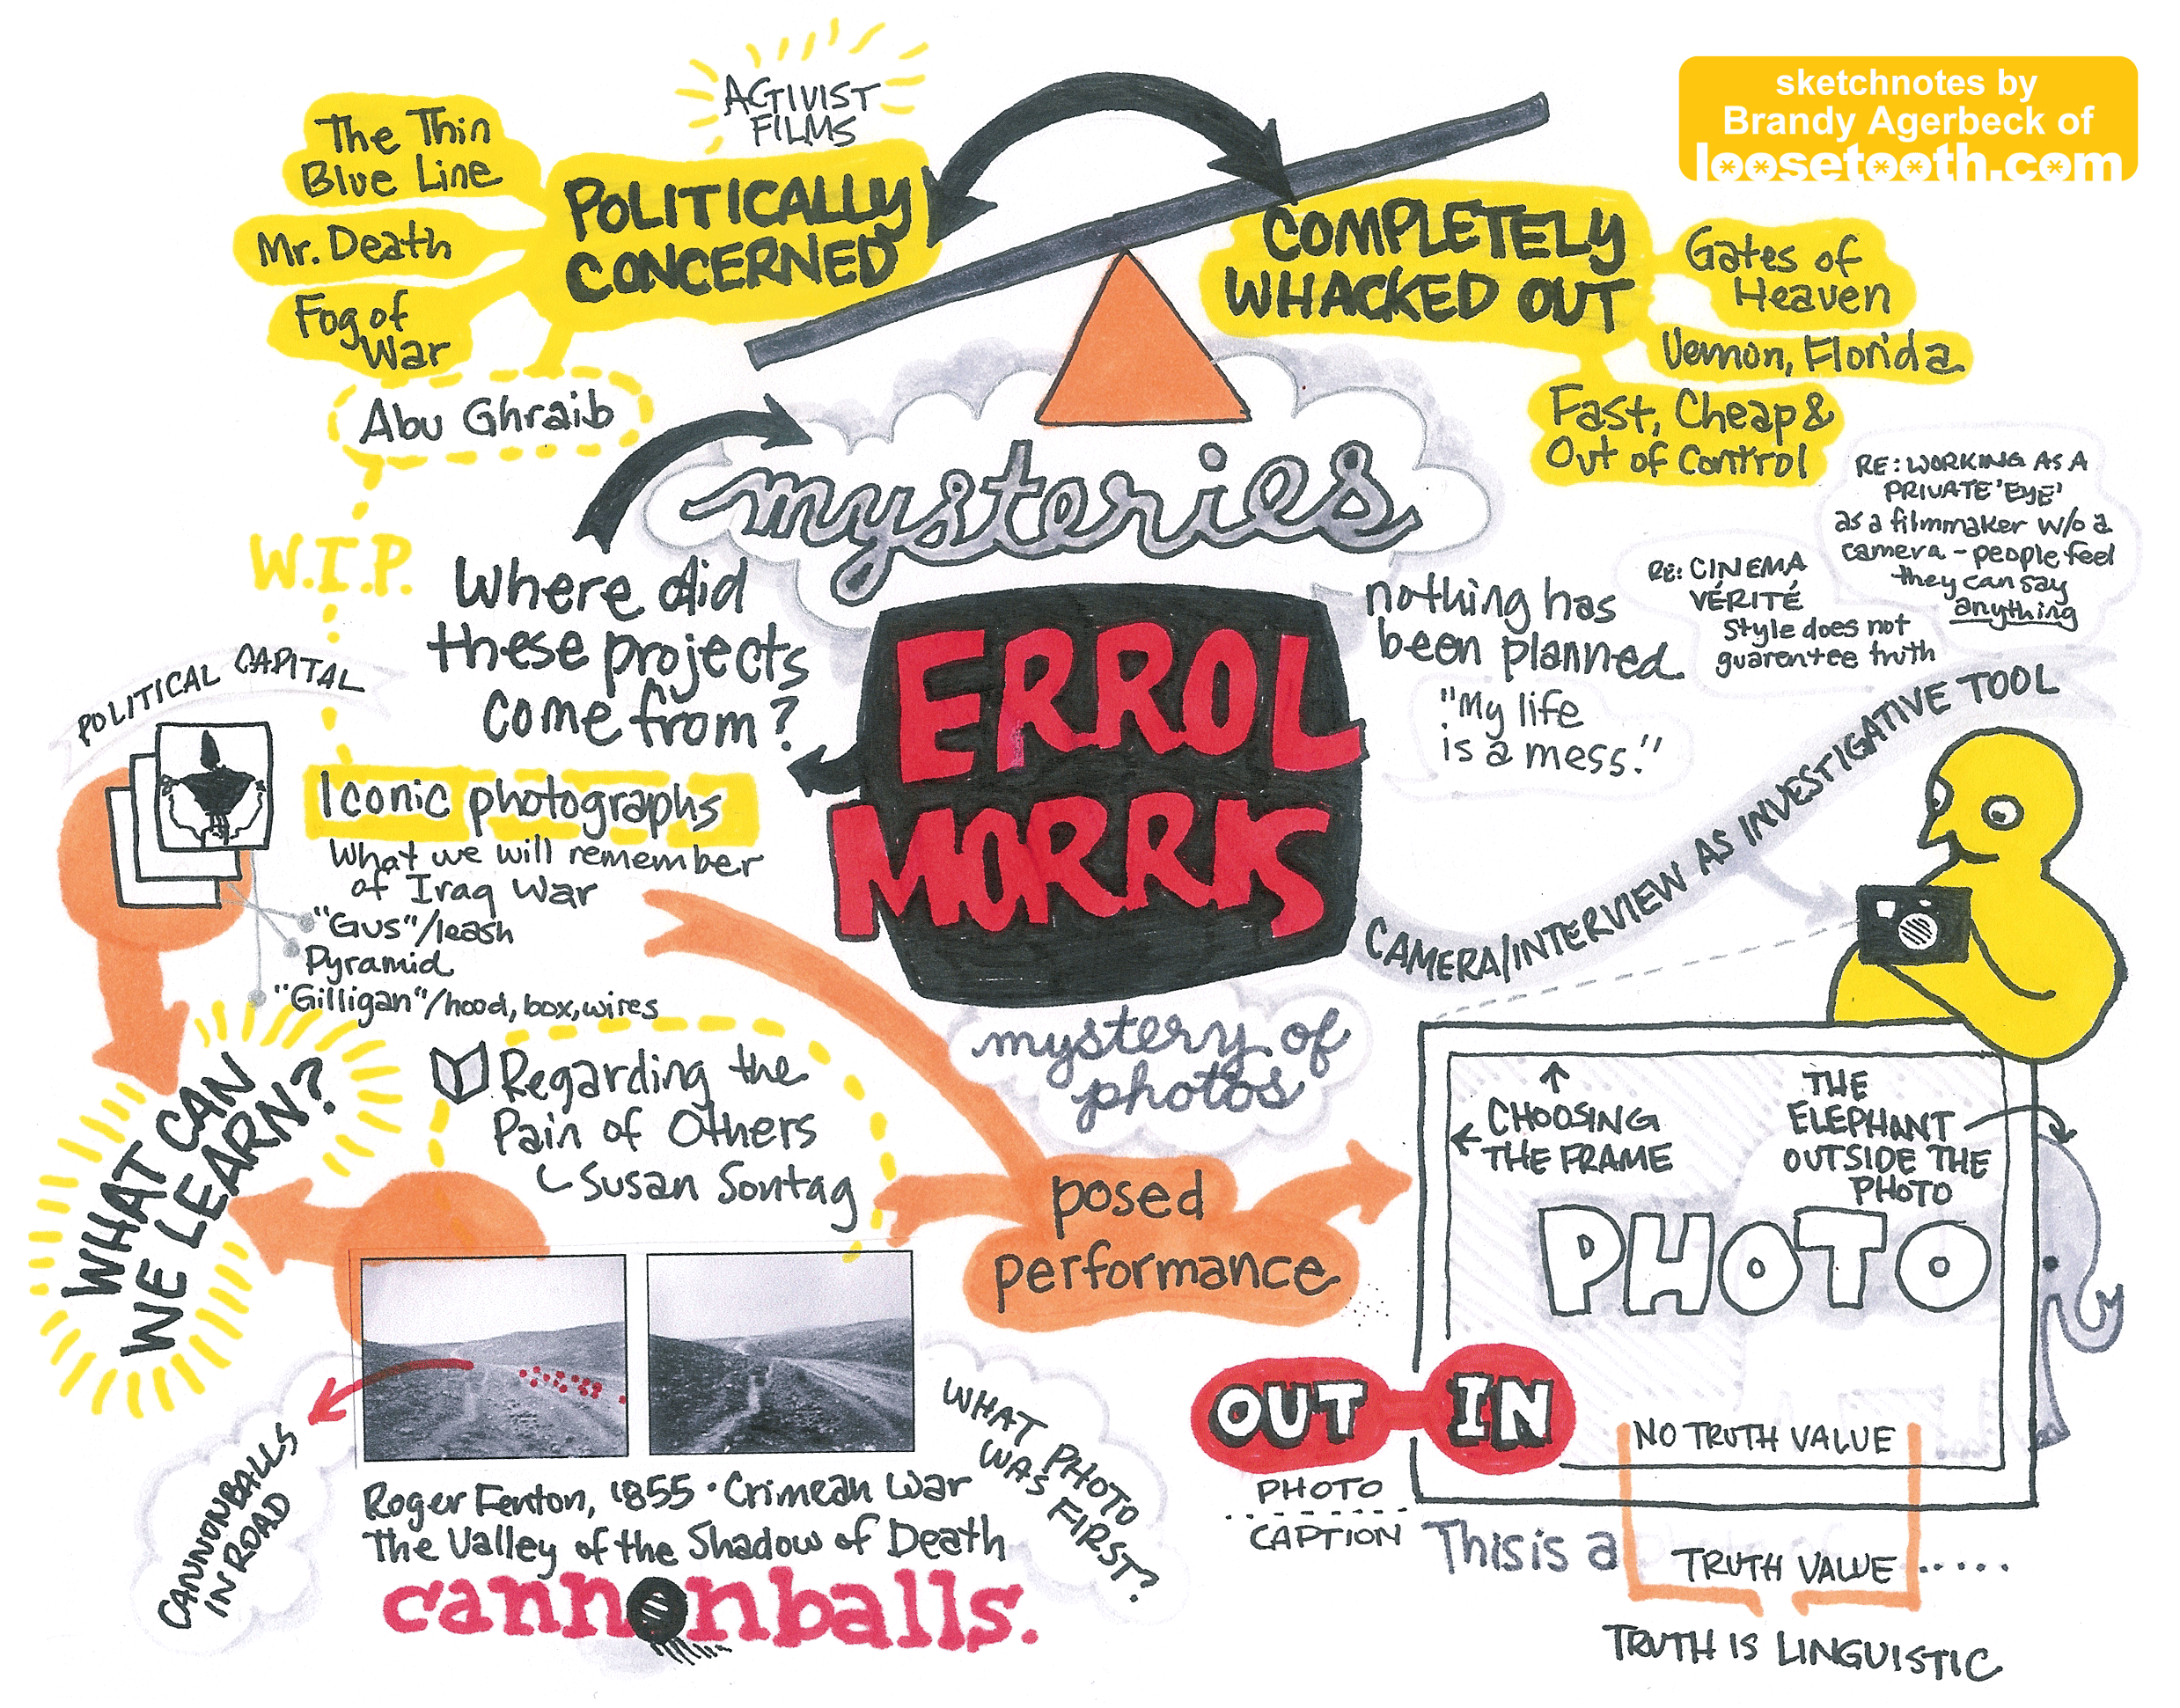 sketchnotes by
Brandy Agerbeck of
loosetooth.com
ACTIVIST
FILMS
The Thin
Blue Line
Mr. Death
Fog of
War
POLITICALLY
CONCERNED
Abu Ghraib
W.I.P.
COMPLETELY
WHACKED OUT
Gates of
Heaven
Vernon, Florida
Fast, Cheap &
Out of Control
mysteries
Where did
these projects
come from?
ERROL
MORRIS
nothing has
been planned
"My life
is a mess."
RE: CINEMA
VÉRITÉ
Style does not
guarentee truth
RE: WORKING AS A
PRIVATE 'EYE'
as a filmmaker w/o a
camera - people feel
they can say
anything
CAMERA/INTERVIEW AS INVESTIGATIVE TOOL
POLITICAL CAPITAL
Iconic photographs
What we will remember
of Iraq War
"Gus"/leash
Pyramid
"Gilligan"/hood, box, wires
WHAT CAN
WE LEARN?
Regarding the
Pain of Others
Susan Sontag
mystery of
photos
posed
performance
CHOOSING
THE FRAME
THE
ELEPHANT
OUTSIDE THE
PHOTO
PHOTO
OUT IN
NO TRUTH VALUE
PHOTO
CAPTION
This is a
TRUTH VALUE .....
TRUTH IS LINGUISTIC
CANNONBALLS
IN ROAD
WHAT PHOTO
WAS FIRST?
Roger Fenton, 1855 · Crimean War
The Valley of the Shadow of Death
cannonballs.